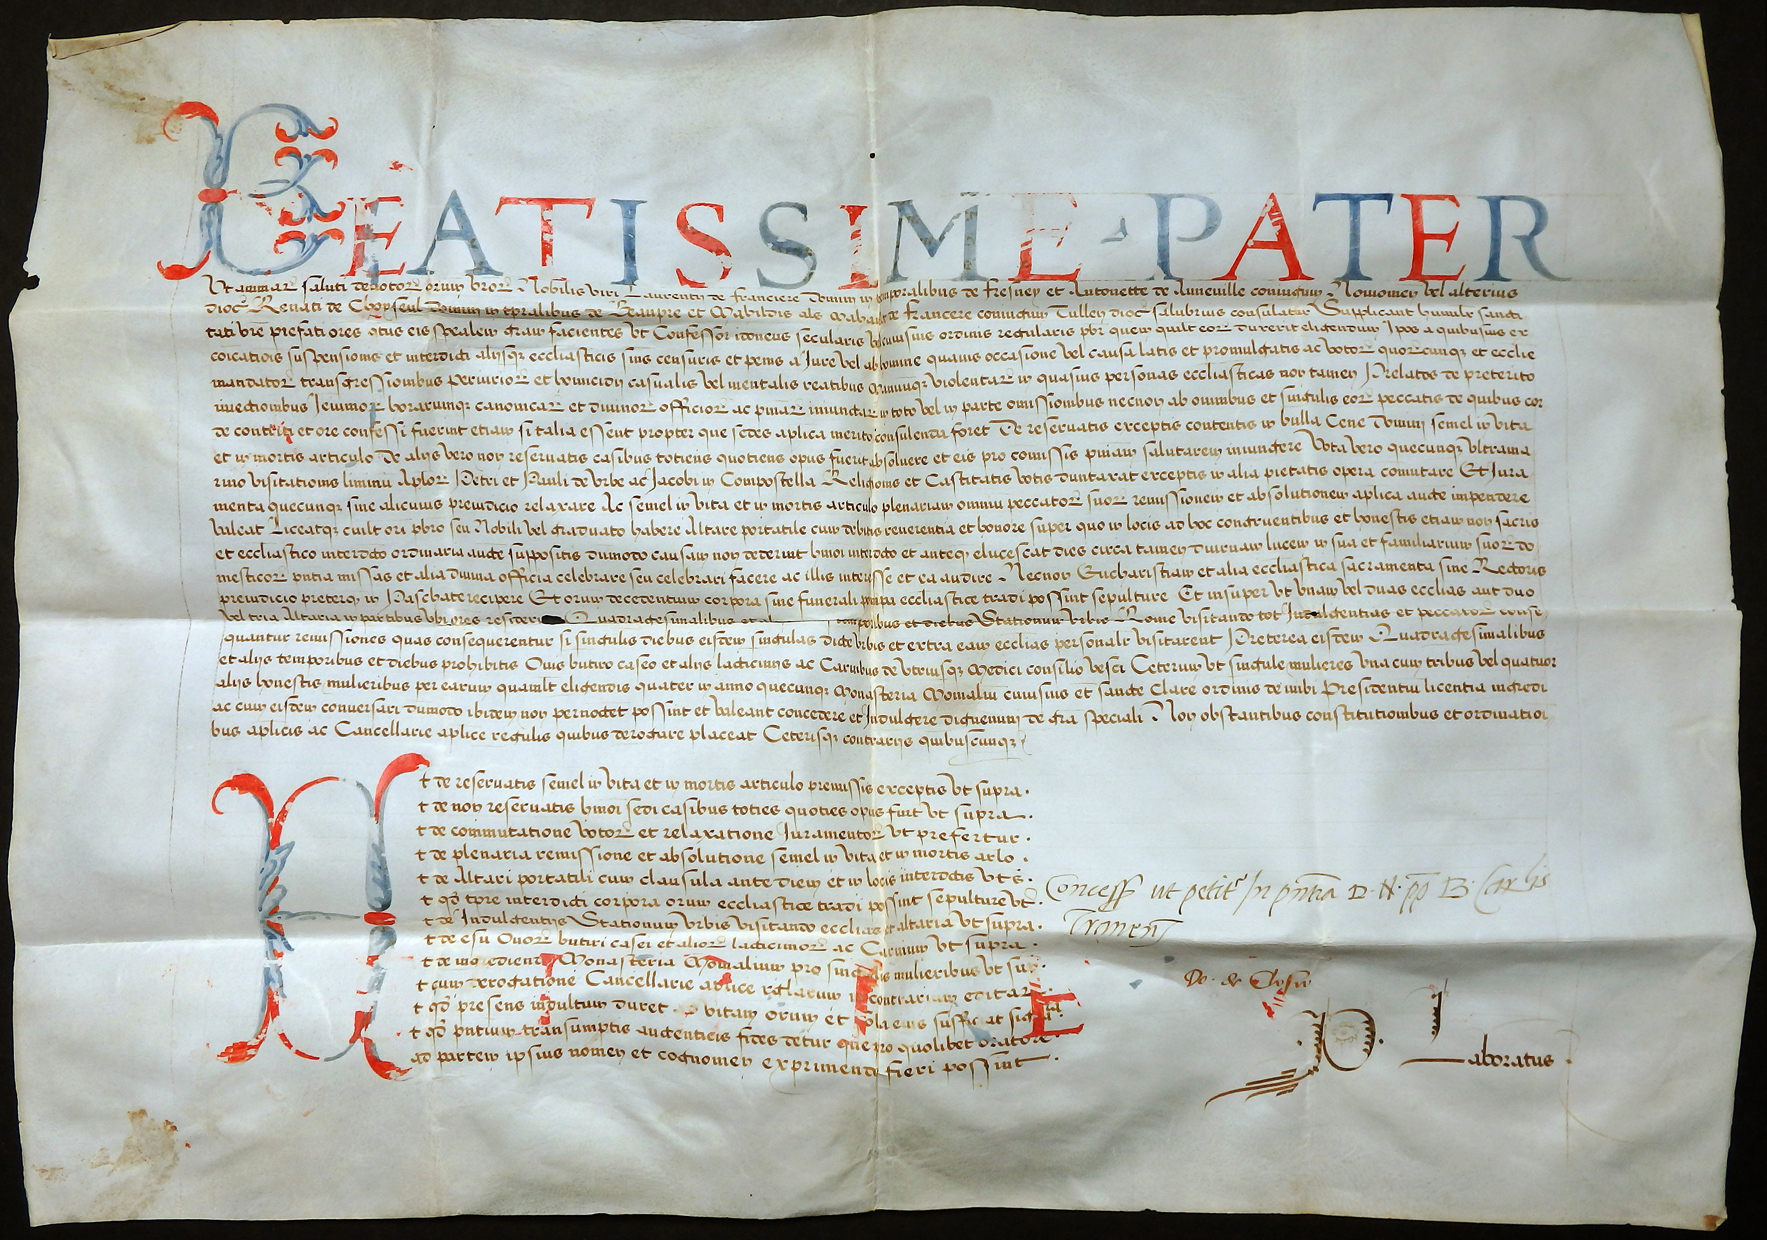 BEATISSIME PATER
Ut animar saluti devotor orum vror Nobilis viri Laurentii de franciere Domini in temporalibus de fresney et Antonette de Anneville coniugum Nomomen vel alterius
dioc Renati de Choyseul Domini in tpralibus de Beaupre et Mabildis als Mahaut de francere coniugum Tulleñ dioc salubrius consulatur Supplicant humilr sancti
tati vre prefati ores qtus eis spealem gram facientes ut Confessor idoneus secularis vel cuiusuis ordinis regularis pbr quem quilt eor duxerit eligendum Ipos a quibusuis ex
coicationis suspensionis et interdicti aliisq ecclesiasticis sniis censuris et penis a Iure vel ab homine quauis occasione vel causa latis et promulgatis ac votor quorcunq et ecclie
mandator transgressionibus periurior et homicidii casualis vel mentalis reatibus manuuq violentar in quasuis personas ecclesiasticas non tamen Prelatos de preterito
iniectionibus Ieiunior horarumq canonicar et divinor officior ac pniar iniunctar in toto vel in parte omissionibus necnon ab omnibus et singulis eor peccatis de quibus cor
de contriti et ore confessi fuerint etiam si talia essent propter que sedes aplica merito consulenda foret De reservatis exceptis contentis in bulla Cene Domini semel in vita
et in mortis articulo De aliis vero non reservatis casibus totiens quotiens opus fuerit absolvere et eis pro comissis pniam salutarem iniungere Vota vero quecunq ultrama
rino visitationis liminu Aplor Petri et Pauli de Urbe ac Jacobi in Compostella Religionis et Castitatis votis duntaxat exceptis in alia pietatis opera comutare Et Iura
menta quecunq sine alicuius preiudicio relaxare Ac semel in vita et in mortis articulo plenariam omniu peccator suor remissionem et absolutionem aplica aucte impendere
valeat Liceatq cuilt ori pbro seu Nobili vel graduato habere Altare portatile cum debitis reverentia et honore super quo in locis ad hoc congruentibus et honestis etiam non sacris
et ecclesiastico interdicto ordinaria aucte suppositis dumodo causam non dederint hmoi interdicto et anteq elucescat dies circa tamen diurnam lucem in sua et familiarium suor do
mesticor pntia missas et alia divina officia celebrare seu celebrari facere ac illis interesse et ea audire Necnon Eucharistiam et alia ecclesiastica sacramenta sine Rectoris
preiudicio preterq in Paschate recipere Et orum decedentium corpora sine funerali pompa ecclesiastice tradi possint sepulture Et insuper ut unam vel duas ecclias aut duo
vel tria Altaria in partibus ubi ores residere Quadragesimalibus et al temporibus et diebus Stationum Urbis Rome visitando tot Indulgentias et peccator conse
quantur remissiones quas consequerentur si singulis diebus eisdem singulas dicte Urbis et extra eam ecclias personalr visitarent Preterea eisdem Quadragesimalibus
et aliis temporibus et diebus prohibitis Ovis butiro caseo et aliis lacticiniis ac Carnibus de utriusq Medici consilio vesci Ceterum ut singule mulieres una cum tribus vel quatuor
aliis honestis mulieribus per earum quamlt eligendis quater in anno quecunq Monasteria Monialiu cuiusuis et sancte Clare ordinis de inibi Presidentiu licentia ingredi
ac cum eisdem conversari dumodo ibidem non pernoctet possint et valeant concedere et Indulgere dignemini de gra speciali Non obstantibus constitutionibus et ordinatioi
bus aplicis ac Cancellarie aplice regulis quibus derogare placeat Ceterisq contrariis quibuscunq
t de reservatis semel in vita et in mortis articulo premissis exceptis ut supra.
t de non reservatis hmoi sedi casibus toties quoties opus fuit ut supra.
t de commutatione votor et relaxatione Iuramentor ut prefertur.
t de plenaria remissione et absolutione semel in vita et in mortis arlo.
t de Altari portatili cum clausula ante diem et in locis interdictis ut s.
t qd tpre interdicti corpora orum ecclesiastice tradi possint sepulture ut
t de Indulgentiis Stationum Urbis visitando ecclias et altaria ut supra.
t de esu Ovor butiri casei et alior lacticinior ac Carnium ut supra.
t de ingrediend Monasteria Monialium pro singulis mulieribus ut sup.
t cum derogatione Cancellarie aplice reglarum in contrariam editar
t qd presens indultum duret ad vitam orum et sola eius sufficiat sig
t qd pntium transumptis autenticis fides detur que pro quolibet oratore
ad partem ipsius nomen et cognomen exprimendi fieri possint
Concess ut petit In pntia D. N. pp B. Car lis
Tranen
Do. de Closiu
P. Laboratus